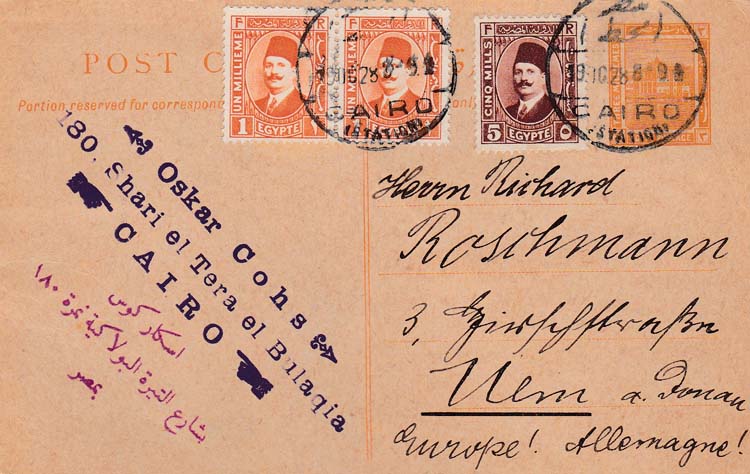 POST C
Portion reserved for correspon
only
UN MILLIEME
1
EGYPTE
UN MILLIEME
EGYPTE
CINQ MILLS
5
EGYPTE
٥
8-9
CAIRO
(STATION)
8-9
CAIRO
(STATION)
Oskar Cohs
180, Shari el Tera el Bulaqia
CAIRO
اسكار كوس
بشارع الترعة البولاكية نمرة ١٨٠
بمصر
Herrn Richard
Roschmann
3, Hirschstraße
Ulm a. Donau
Europe! Allemagne!